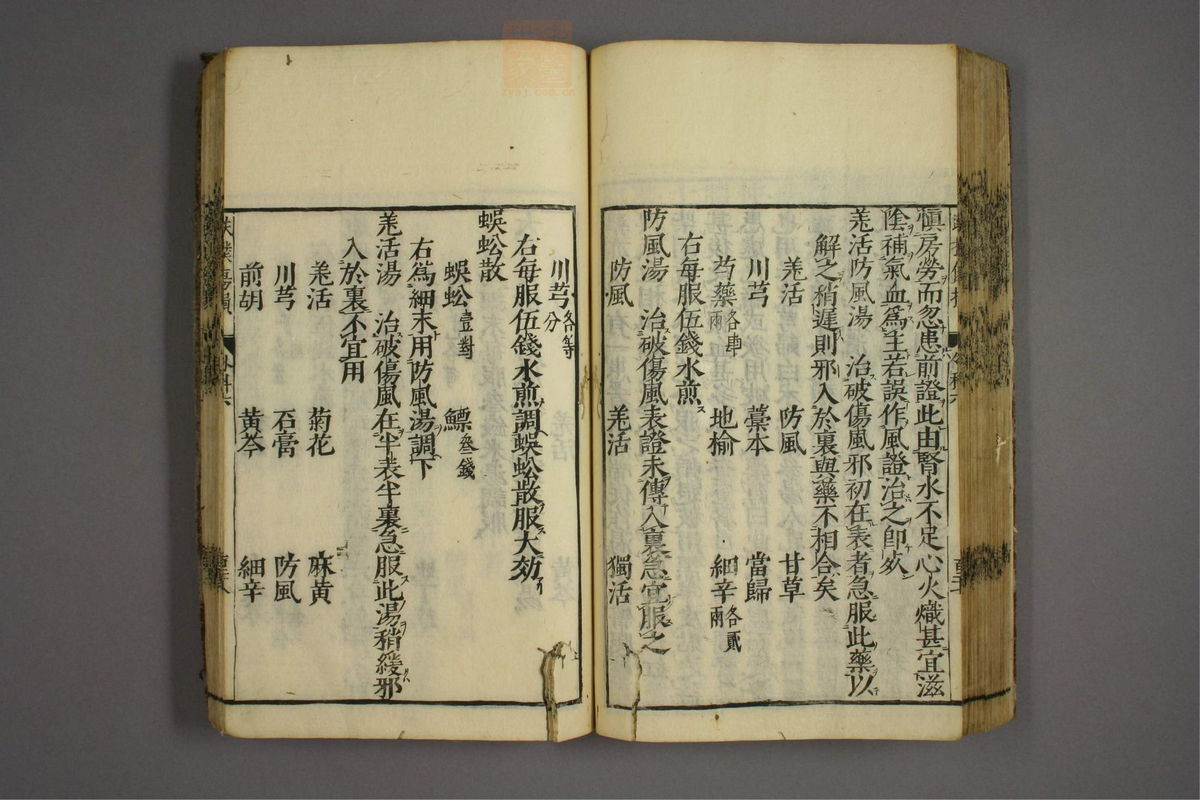 慎房勞而忽患前證此由腎水不足心火熾甚宜滋
陰補氣血爲主若誤作風證治之即死
羌活防風湯　治破傷風邪初在表者急服此藥以
解之稍遲則邪入於裏與藥不相合矣
羌活　防風　甘草
川芎　藁本　當歸
芍藥各肆兩　地榆　細辛各貳兩
右每服伍錢水煎
防風湯　治破傷風表證未傳入裏急宜服之
防風　羌活　獨活
川芎各等分
右每服伍錢水煎調蜈蚣散服大効
蜈蚣散
蜈蚣壹對　鰾叄錢
右爲細末用防風湯調下
羌活湯　治破傷風在半表半裏急服此湯稍緩邪
入於裏不宜用
羌活　菊花　麻黃
川芎　石膏　防風
前胡　黃芩　細辛
外科六